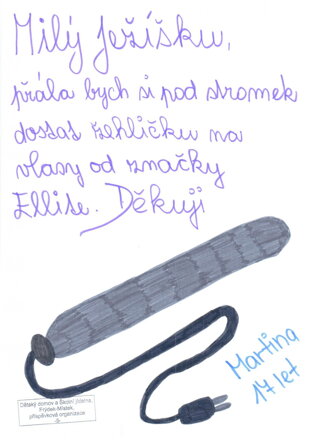 Milý Ježíšku,
přála bych si pod stromek
dostat žehličku na
vlasy od značky
Ellise. Děkuji
Martina
17 let
Dětský domov a Školní jídelna,
Frýdek-Místek,
příspěvková organizace